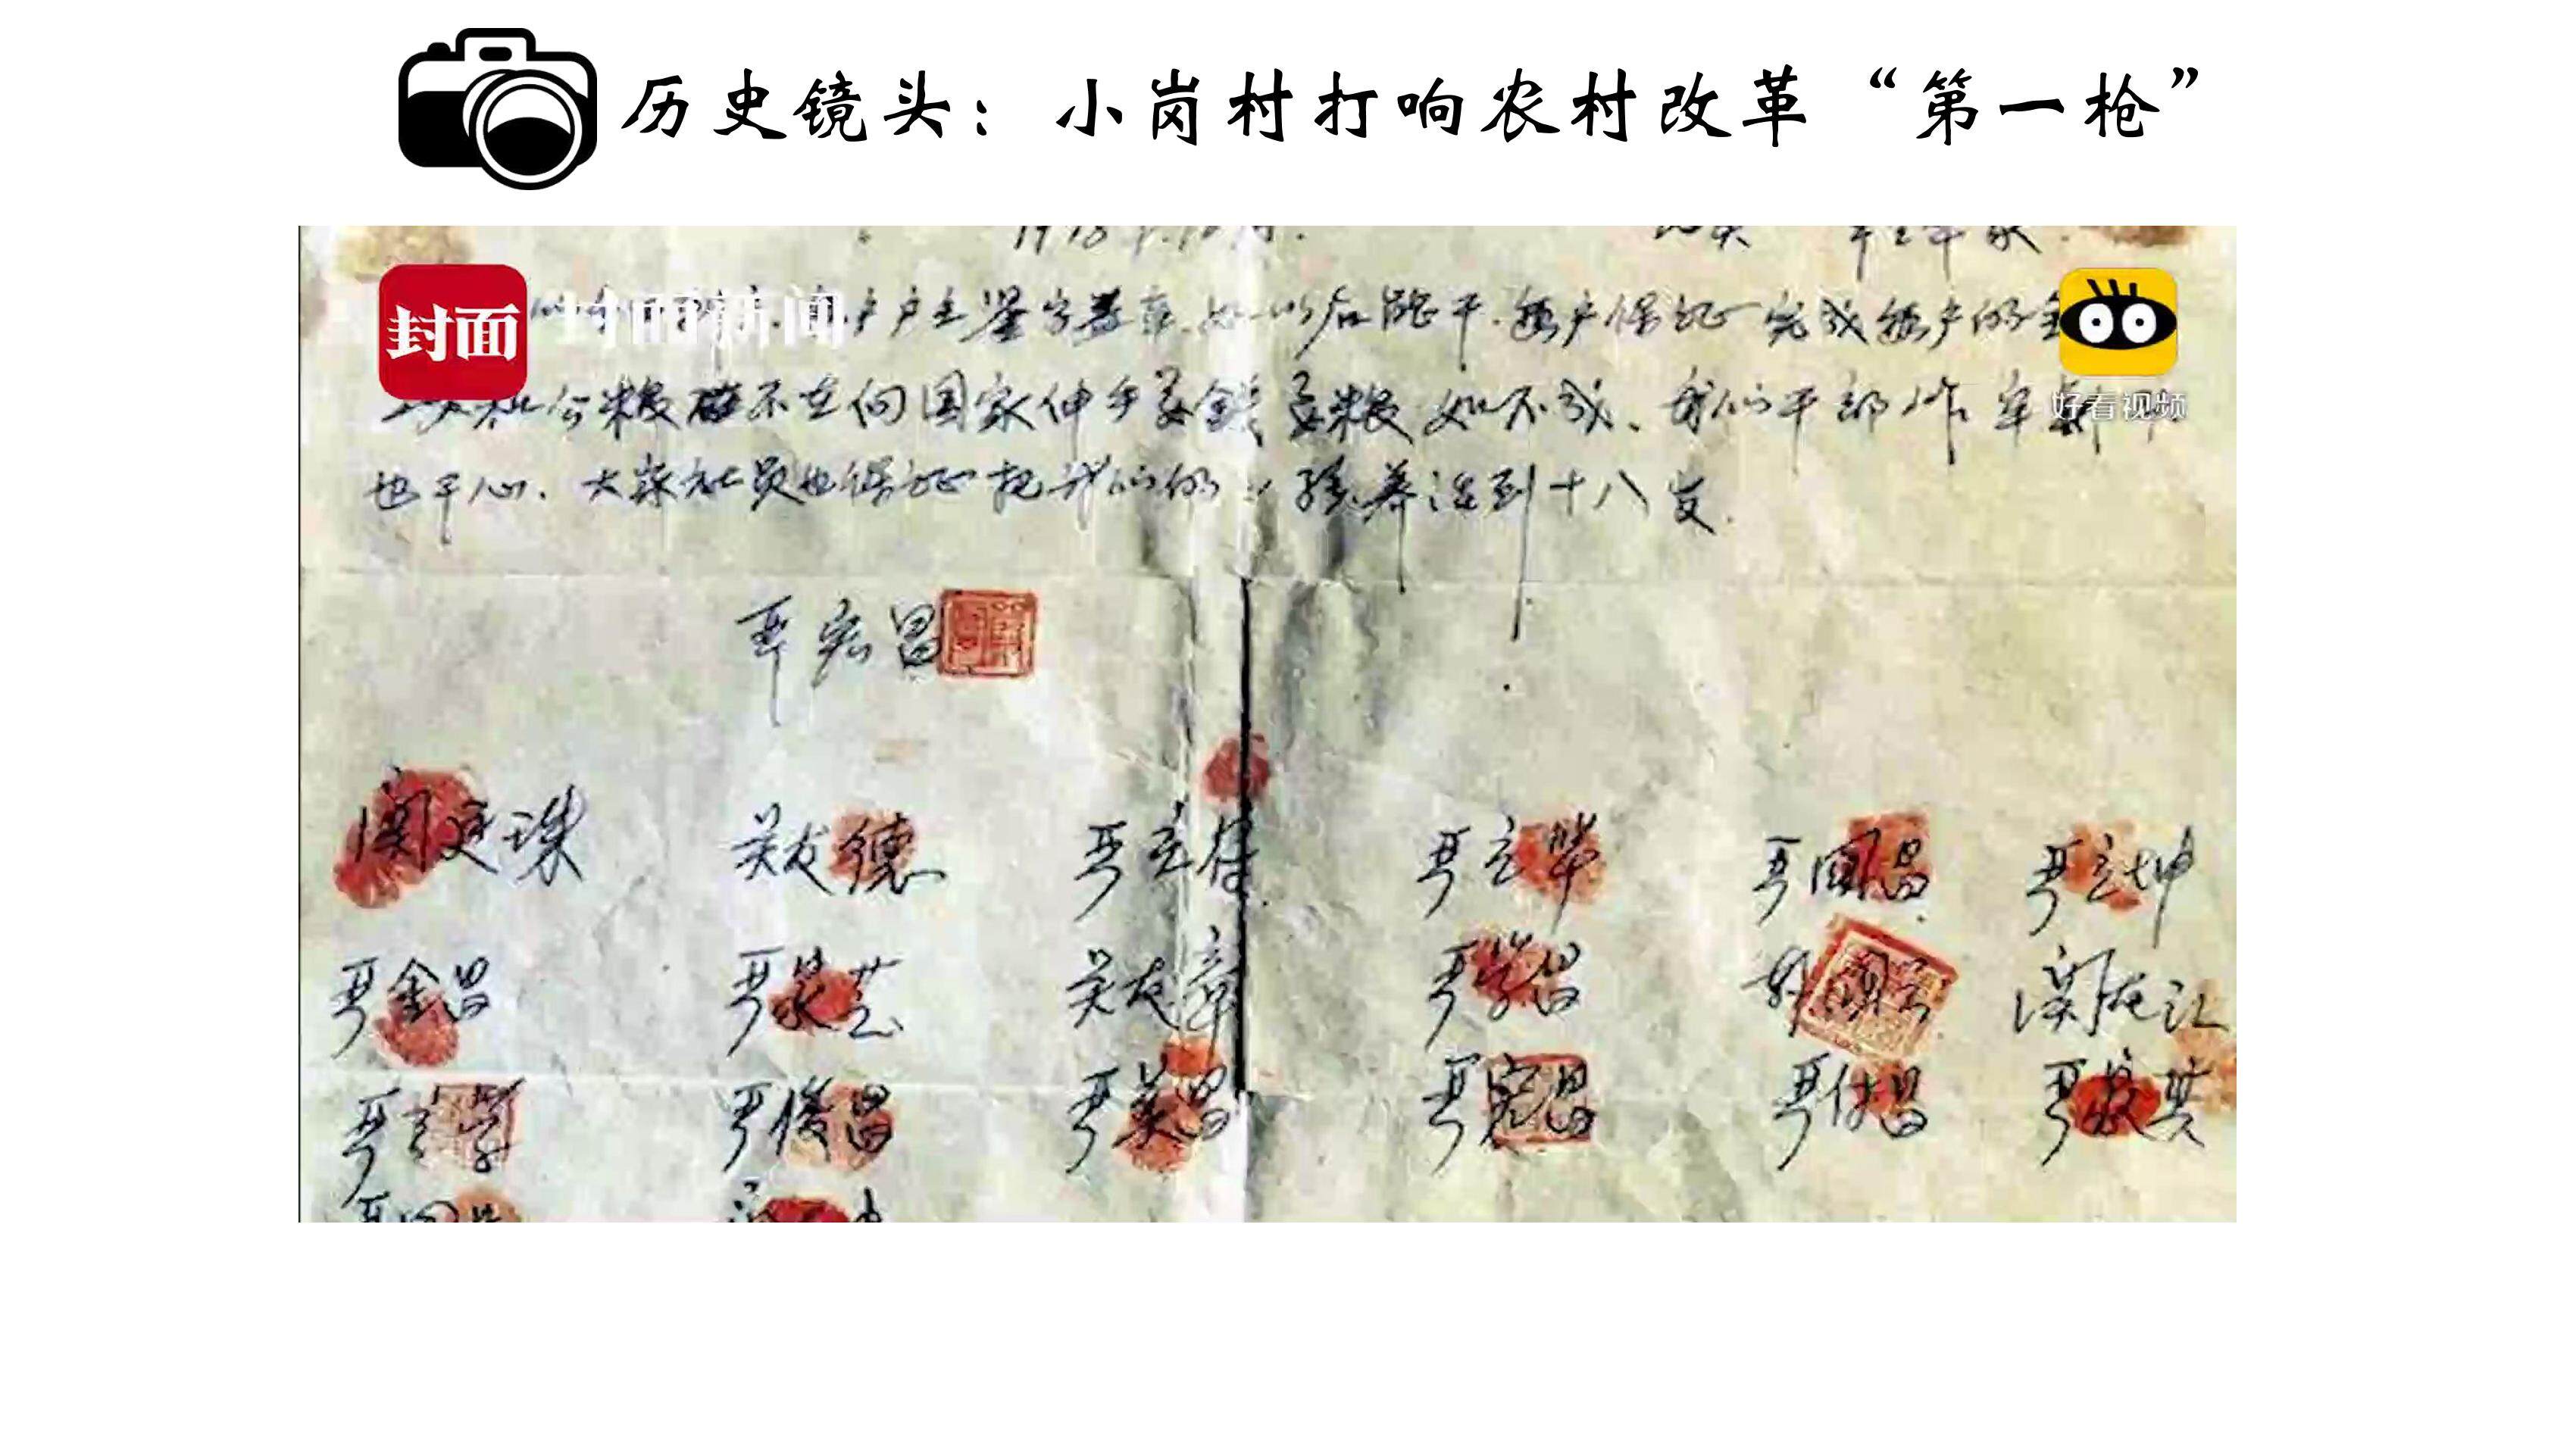 历史镜头：小岗村打响农村改革“第一枪”
封面 封面新闻
户户主签字盖章 如以后能干 每户保证完成每户的全
公粮 不在向国家伸手要钱要粮 如不成、我们干部作牢
也干心、大家社员也保证把我们的小孩养活到十八岁.
好看视频
严宏昌
关友德 严立华 严国昌 严立坤
严金昌 严家芝 关友章 严学昌 关友江
严立学 严俊昌 严美昌 严宏昌 严付昌 严家其